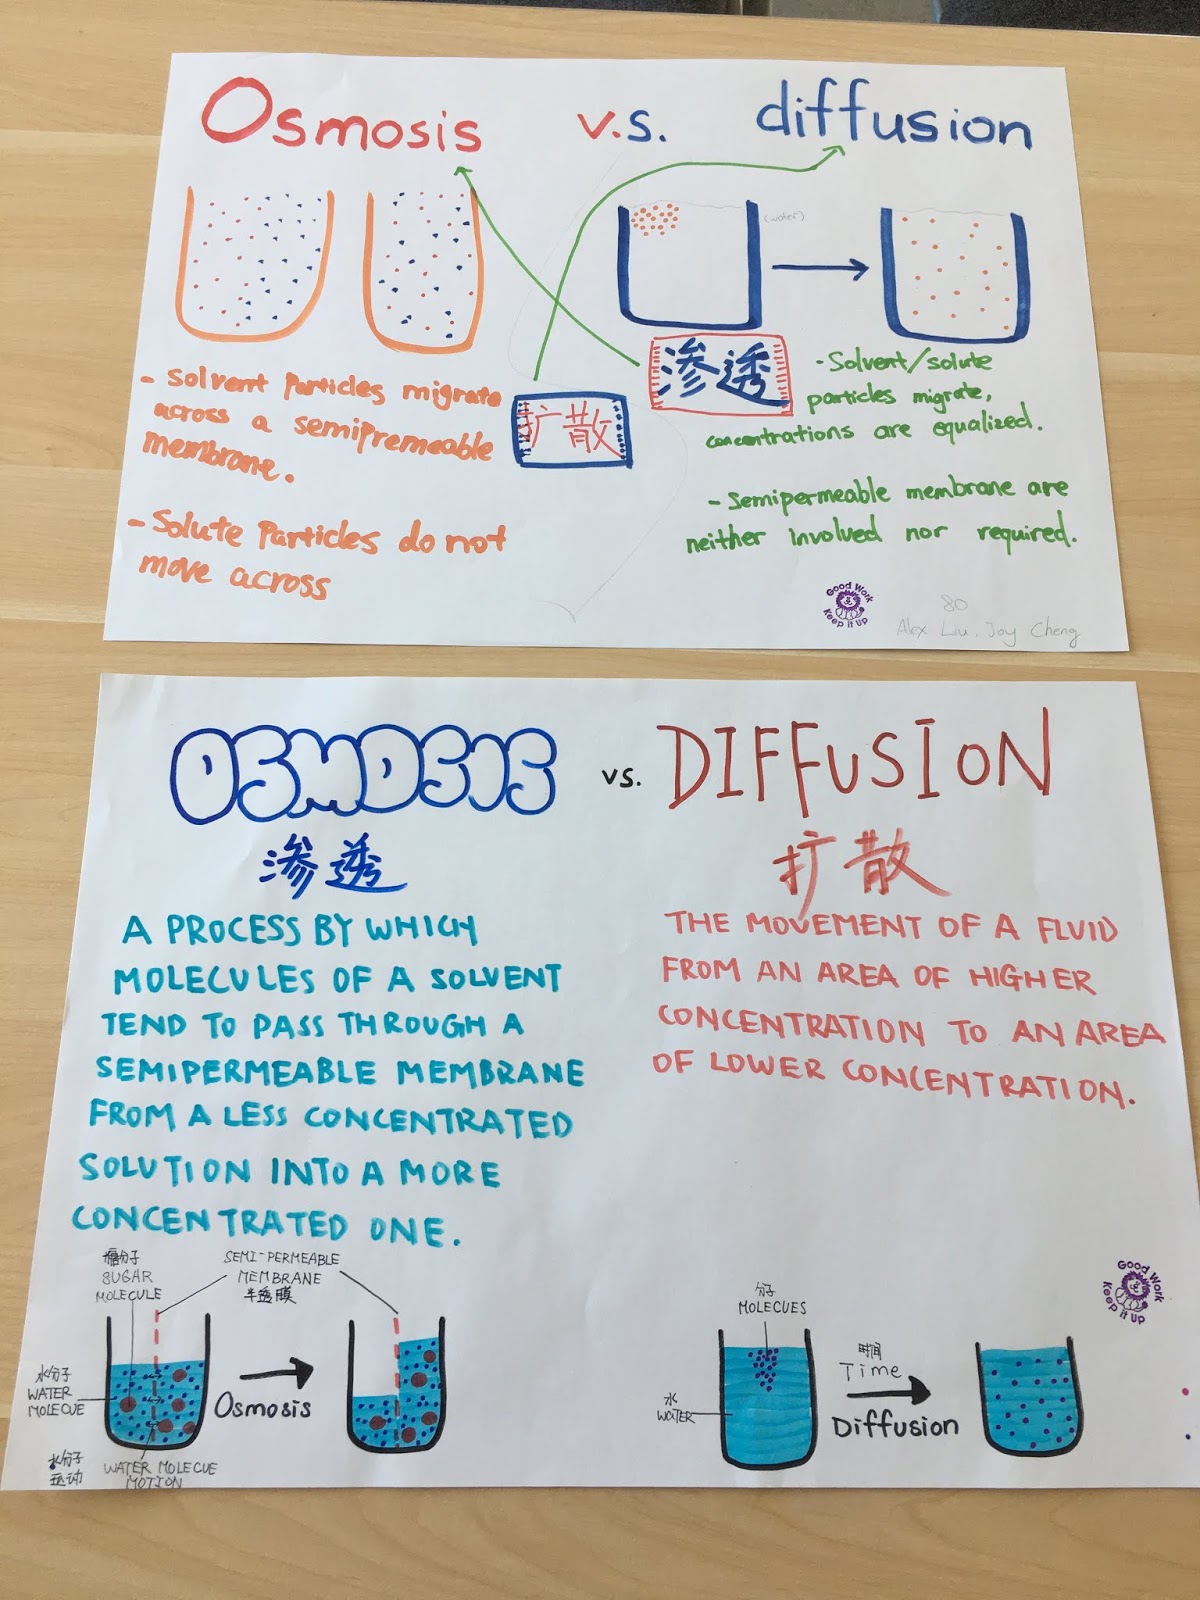 Osmosis v.s. diffusion
(water)
- Solvent Particles migrate
across a semipremeable
membrane.
- Solute Particles do not
move across
扩散
渗透
- Solvent/solute
particles migrate,
concentrations are equalized.
- Semipermeable membrane are
neither involved nor required.
Good Work
Keep it Up
80
Alex Liu, Joy Cheng
OSMOSIS vs. DIFFUSION
渗透
A PROCESS BY WHICH
MOLECULES OF A SOLVENT
TEND TO PASS THROUGH A
SEMIPERMEABLE MEMBRANE
FROM A LESS CONCENTRATED
SOLUTION INTO A MORE
CONCENTRATED ONE.
扩散
THE MOVEMENT OF A FLUID
FROM AN AREA OF HIGHER
CONCENTRATION TO AN AREA
OF LOWER CONCENTRATION.
糖分子
SUGAR
MOLECULE
SEMI-PERMEABLE
MEMBRANE
半透膜
水分子
WATER
MOLECUE
Osmosis
水分子
运动
WATER MOLECUE
MOTION
Good Work
Keep it Up
分子
MOLECUES
时间
Time
Diffusion
水
WATER